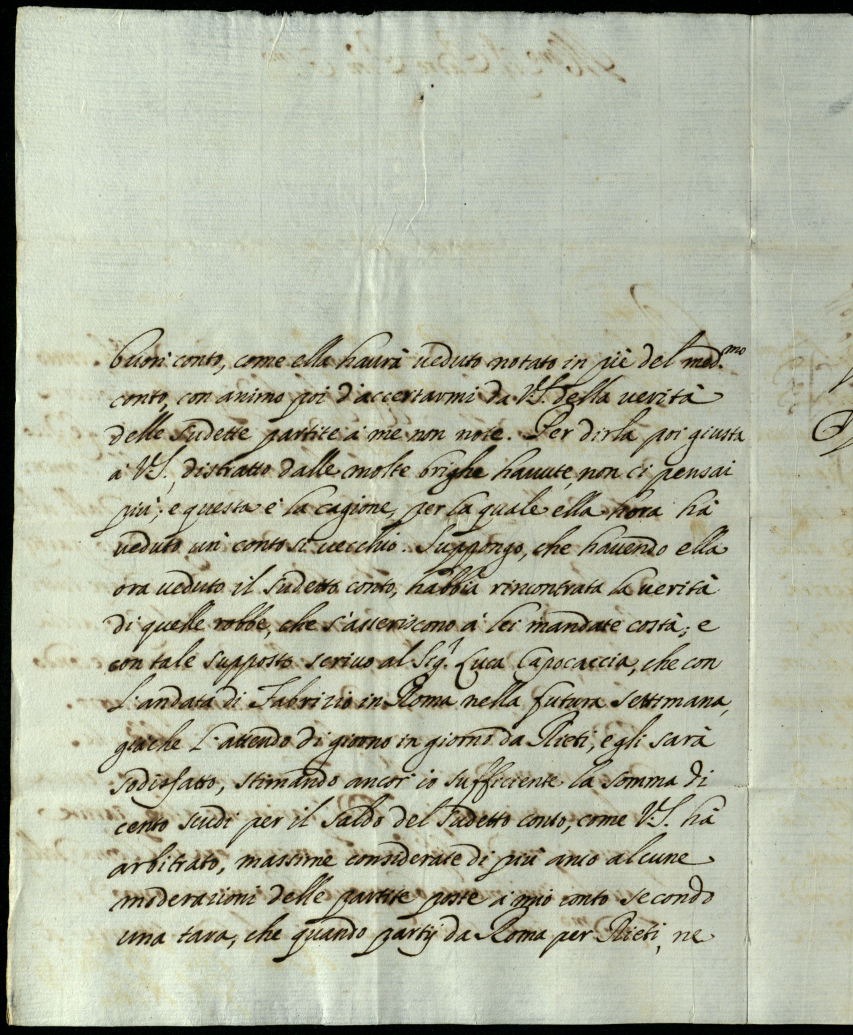 buon conto, come ella havrà veduto notato in piè del med.mo
conto, con animo poi d'accertarmi da V.S. della verità
delle sudette partite à me non note. Per dirla poi giusta
à V.S., distratto dalle molte brighe havute, non ci pensai
più; e questa è la cagione, per la quale ella hora hà
veduto un' conto sì vecchio. Suppongo, che havendo ella
ora veduto il sudetto conto, habbia rincontrata la verità
di quelle robbe, che s'asseriscono à lei mandate costà; e
con tale supposto scrivo al Sig.r Luca Capocaccia, che con
l'andata di Fabrizio in Roma nella futura settimana,
giache l'attendo di giorno in giorno da Rieti, egli sarà
sodisfatto, stimando ancor' io sufficiente la somma di
cento scudi per il saldo del sudetto conto, come V.S. hà
arbitrato, massime considerate di più anco alcune
moderazioni delle partite poste à mio conto secondo
una tara, che quando partij da Roma per Rieti, ne